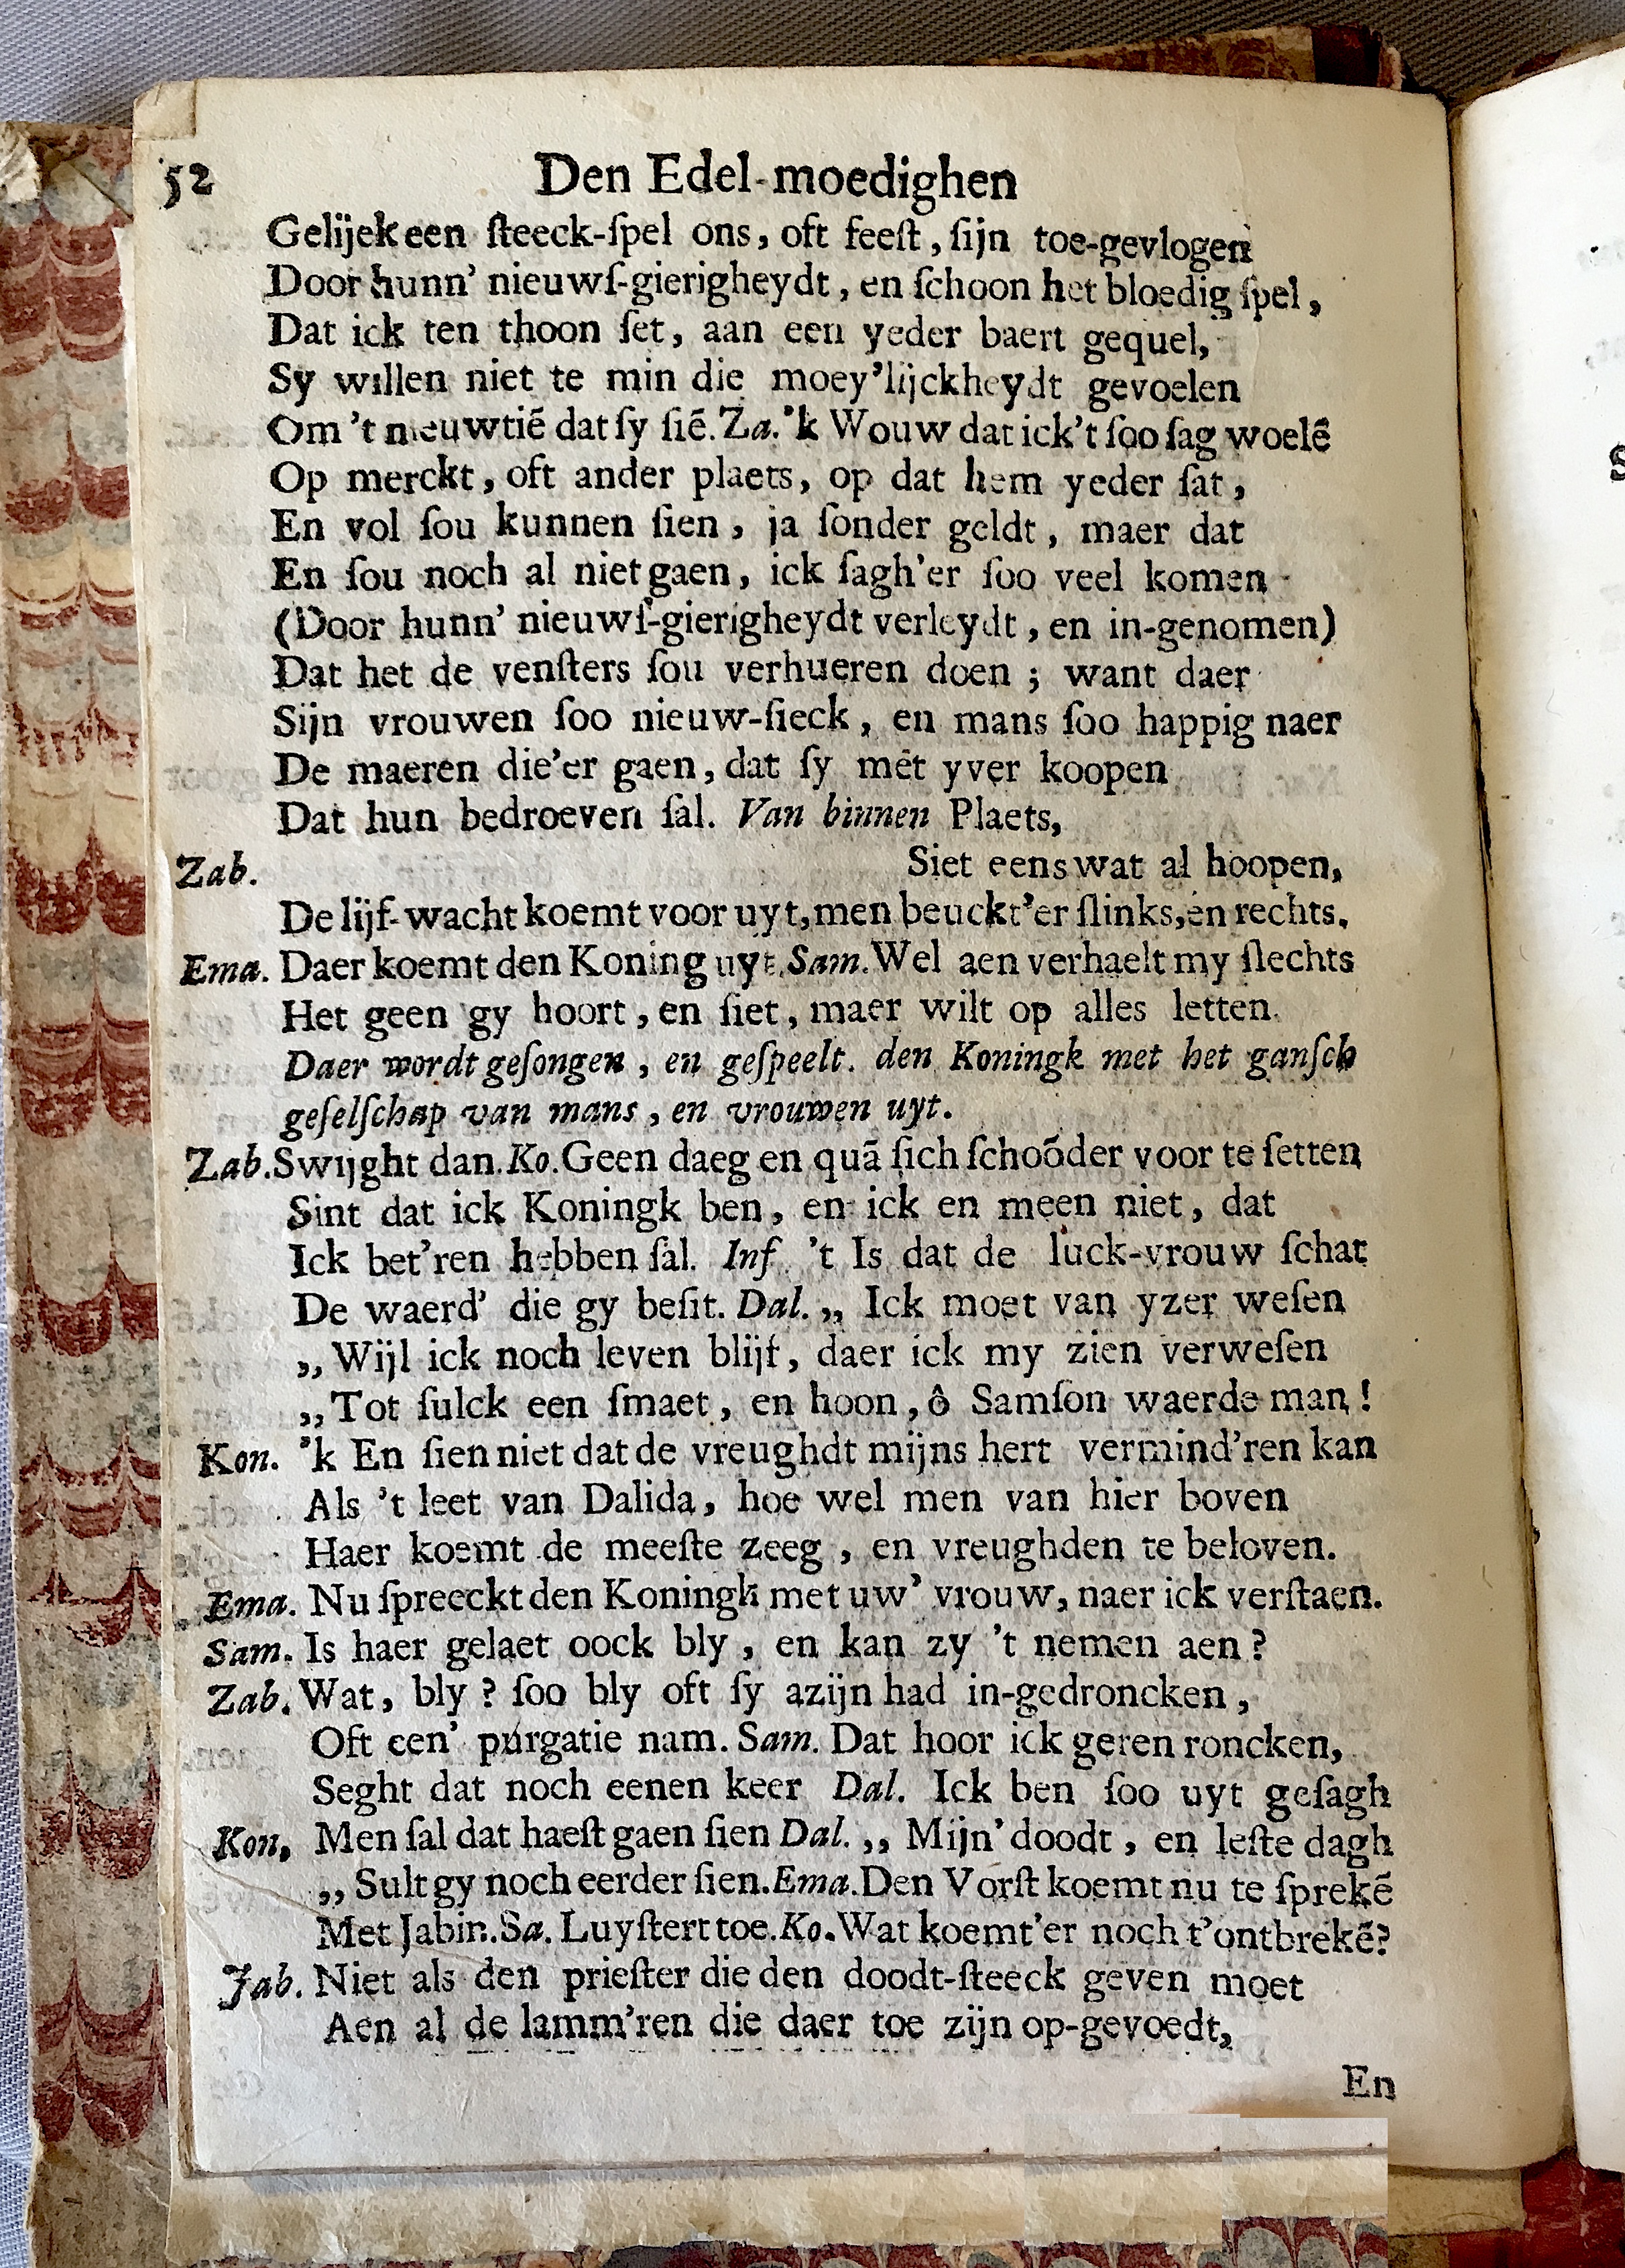 52 Den Edel-moedighen
Gelijck een ſteeck-ſpel ons, oft feeſt, ſijn toe-gevlogen
Door hunn' nieuwſ-gierigheydt, en ſchoon het bloedig ſpel,
Dat ick ten thoon ſet, aan een yeder baert gequel,
Sy willen niet te min die moey'lijckheydt gevoelen
Om 't nieuwtiē dat ſy ſiē. Za. 'k Wouw dat ick't ſoo ſag woelē
Op merckt, oft ander plaets, op dat hem yeder ſat,
En vol ſou kunnen ſien, ja ſonder geldt, maer dat
En ſou noch al niet gaen, ick ſagh'er ſoo veel komen
(Door hunn' nieuwſ-gierigheydt verleydt, en in-genomen)
Dat het de venſters ſou verhueren doen; want daer
Sijn vrouwen ſoo nieuw-ſieck, en mans ſoo happig naer
De maeren die'er gaen, dat ſy met yver koopen
Dat hun bedroeven ſal. Van binnen Plaets,
Zab. Siet eens wat al hoopen,
De lijf-wacht koemt voor uyt, men beuckt'er ſlinks, en rechts.
Ema. Daer koemt den Koning uyt. Sam. Wel aen verhaelt my ſlechts
Het geen gy hoort, en ſiet, maer wilt op alles letten.
Daer wordt geſongen, en geſpeelt. den Koningk met het ganſch
geſelſchap van mans, en vrouwen uyt.
Zab. Swijght dan. Ko. Geen daeg en quā ſich ſchoōder voor te ſetten
Sint dat ick Koningk ben, en ick en meen niet, dat
Ick bet'ren hebben ſal. Inf. 't Is dat de luck-vrouw ſchat
De waerd' die gy beſit. Dal. „ Ick moet van yzer weſen
„ Wijl ick noch leven blijf, daer ick my zien verweſen
„ Tot ſulck een ſmaet, en hoon, ô Samſon waerde man!
Kon. 'k En ſien niet dat de vreughdt mijns hert vermind'ren kan
Als 't leet van Dalida, hoe wel men van hier boven
Haer koemt de meeſte zeeg, en vreughden te beloven.
Ema. Nu ſpreeckt den Koningk met uw' vrouw, naer ick verſtaen.
Sam. Is haer gelaet oock bly, en kan zy 't nemen aen?
Zab. Wat, bly? ſoo bly oft ſy azijn had in-gedroncken,
Oft een' purgatie nam. Sam. Dat hoor ick geren roncken,
Seght dat noch eenen keer Dal. Ick ben ſoo uyt geſagh
Kon. Men ſal dat haeſt gaen ſien Dal. „ Mijn' doodt, en leſte dagh
„ Sult gy noch eerder ſien. Ema. Den Vorſt koemt nu te ſprekē
Met Jabin. Sa. Luyſtert toe. Ko. Wat koemt'er noch t'ontbrekē?
Jab. Niet als den prieſter die den doodt-ſteeck geven moet
Aen al de lamm'ren die daer toe zijn op-gevoedt,
En